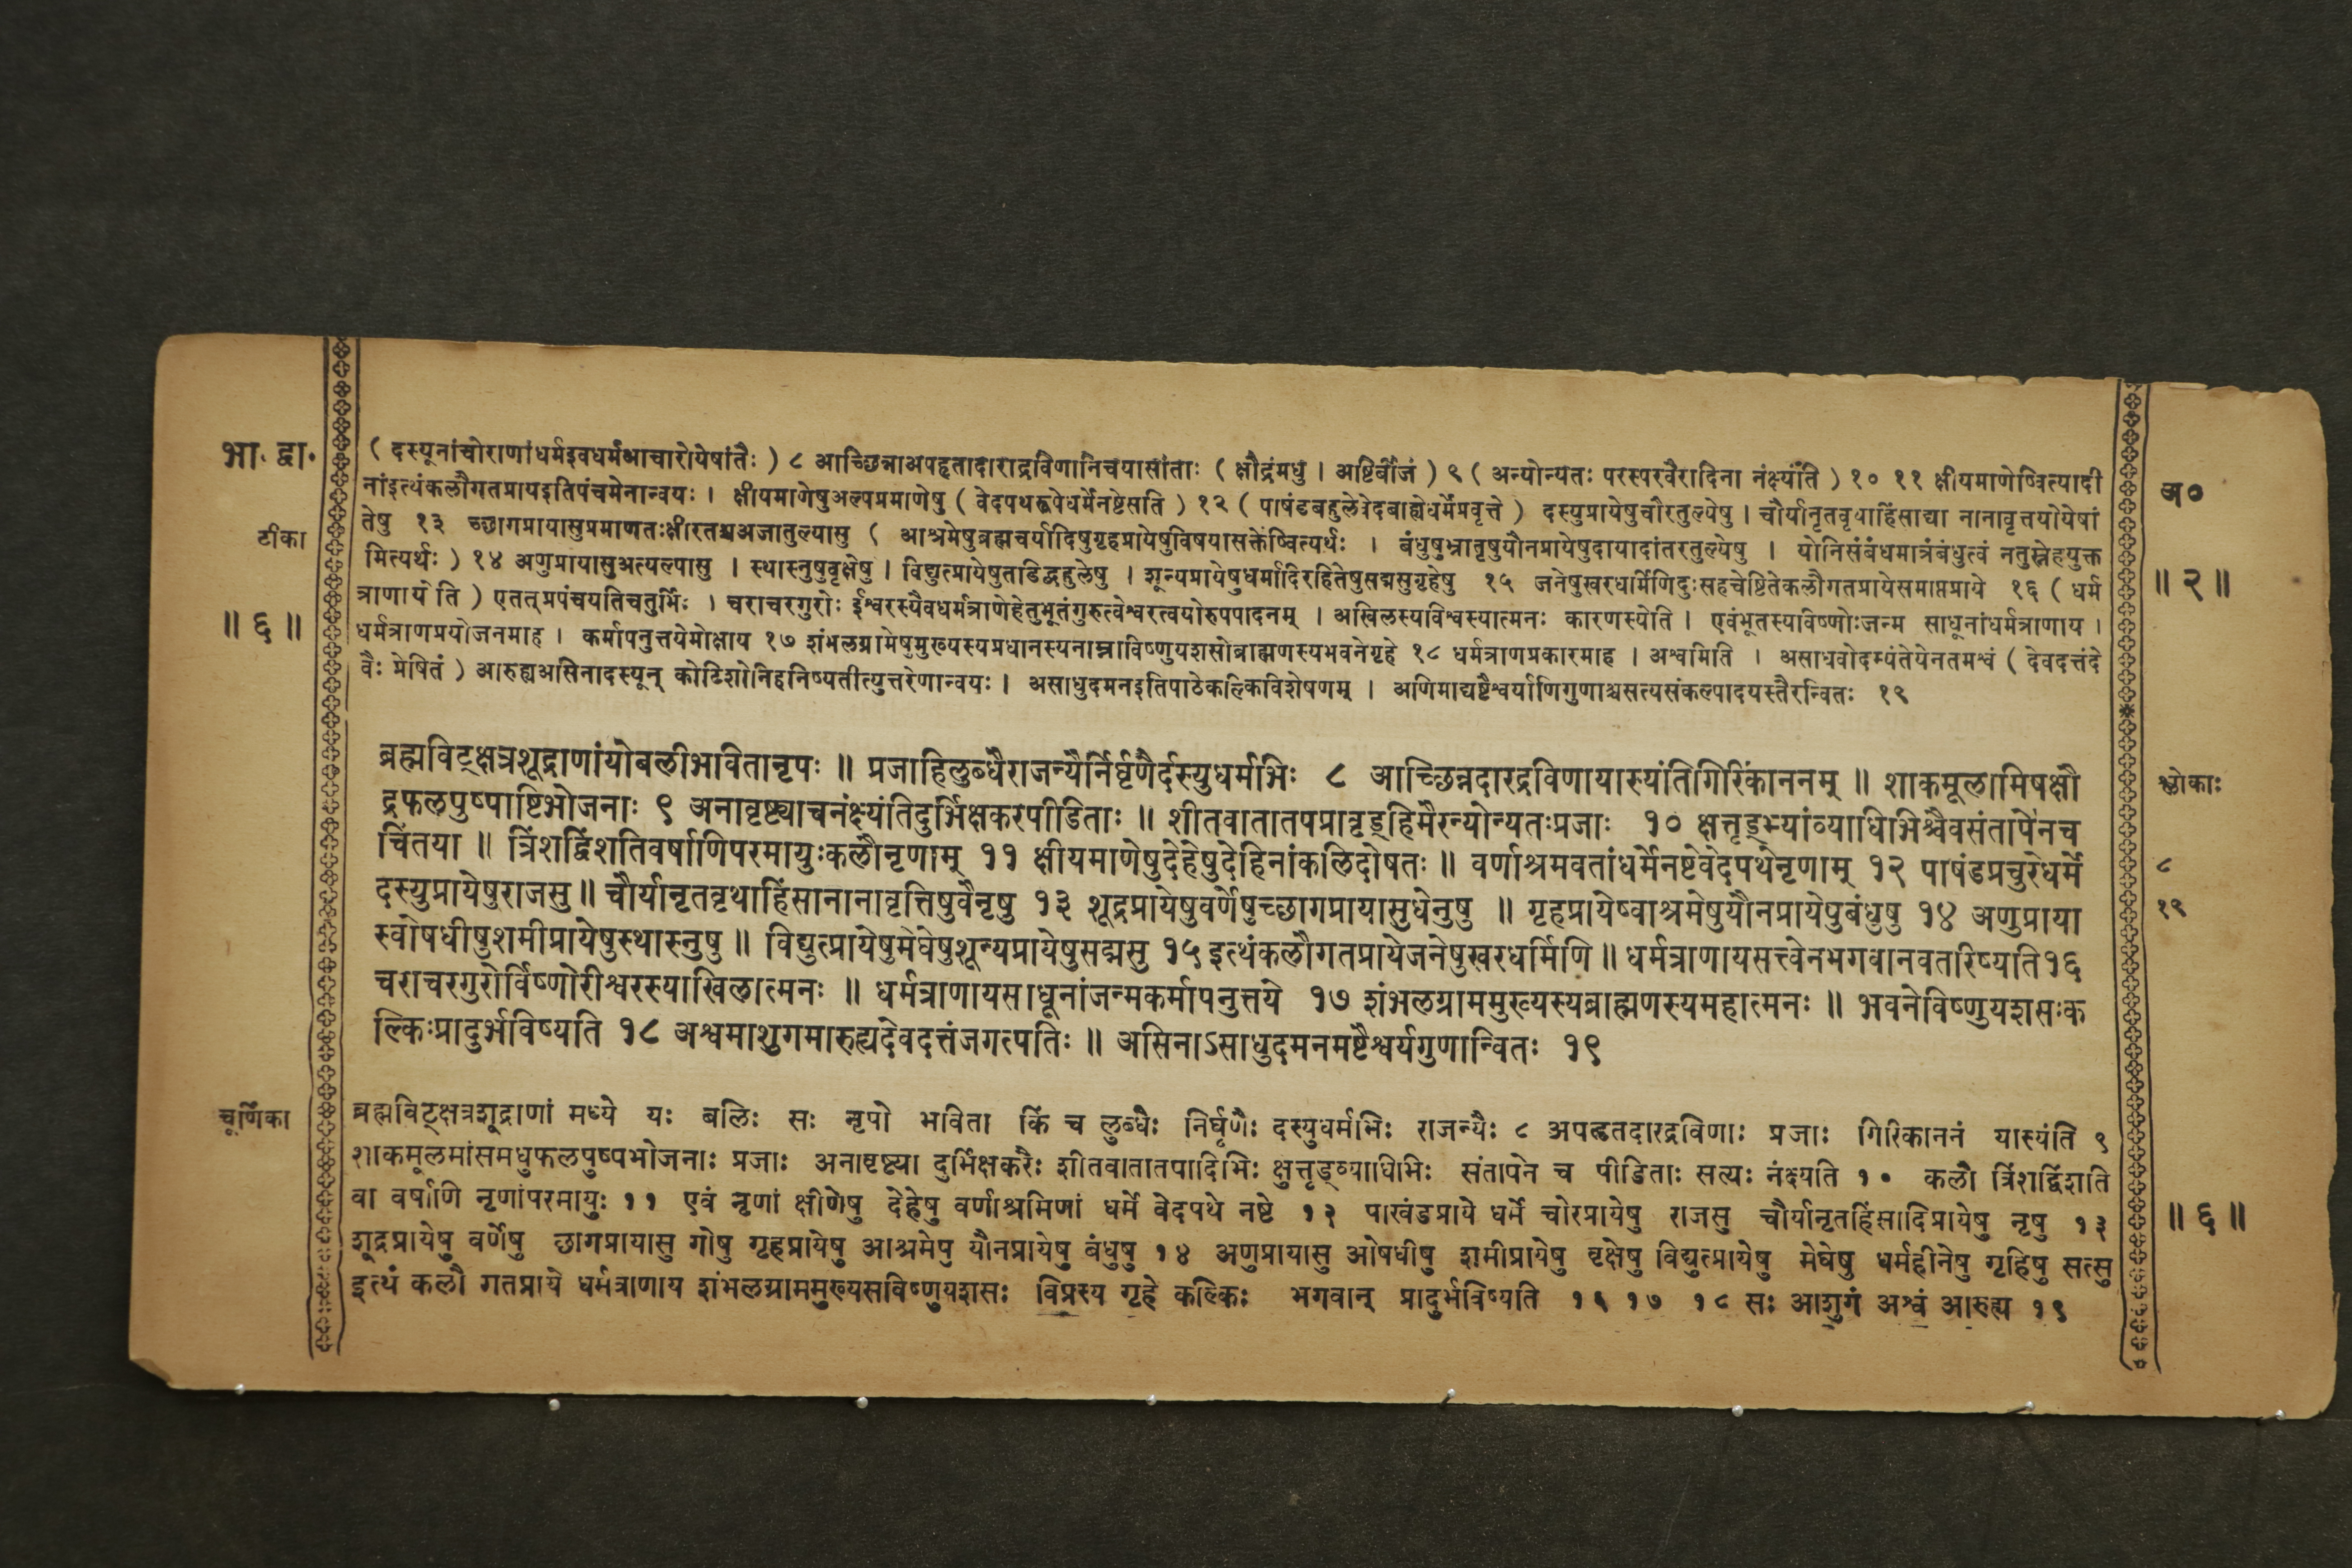 भा. द्वा.
टीका
॥ ६ ॥
( दस्यूनांचोराणांधर्मइवधर्मआचारोयेषांतैः ) ८ आच्छिन्नाअपहृतादाराद्रविणानिचयासांताः ( क्षौद्रंमधु । अष्टिर्बीजं ) ९ ( अन्योन्यतः परस्परवैरादिना नंक्ष्यंति ) १० ११ क्षीयमाणेष्वित्यादी
नांइत्थंकलौगतप्रायइतिपंचमेनान्वयः । क्षीयमाणेषुअल्पप्रमाणेषु ( वेदपथरूपेधर्मेनष्टेसति ) १२ ( पाषंडबहुलेवेदबाह्येधर्मेप्रवृत्ते ) दस्युप्रायेषुचौरतुल्येषु । चौर्यानृतवृथाहिंसाद्या नानावृत्तयोयेषां
तेषु १३ च्छागप्रायासुप्रमाणतःक्षीरतश्चअजातुल्यासु ( आश्रमेषुब्रह्मचर्यादिषुगृहप्रायेषुविषयासक्तेष्वित्यर्थः । बंधुषुभ्रातृषुयौनप्रायेषुदायादांतरतुल्येषु । योनिसंबंधमात्रंबंधुत्वं नतुस्नेहयुक्त
मित्यर्थः ) १४ अणुप्रायासुअत्यल्पासु । स्थास्नुषुवृक्षेषु । विद्युत्प्रायेषुतडिद्बहुलेषु । शून्यप्रायेषुधर्मादिरहितेषुसद्मसुगृहेषु १५ जनेषुखरधर्मिणिदुःसहचेष्टितेकलौगतप्रायेसमाप्तप्राये १६ ( धर्म
त्राणायेति ) एतत्प्रपंचयतिचतुर्भिः । चराचरगुरोः ईश्वरस्यैवधर्मत्राणेहेतुभूतंगुरुत्वेश्वरत्वयोरुपपादनम् । अखिलस्यविश्वस्यात्मनः कारणस्येति । एवंभूतस्यविष्णोःजन्म साधूनांधर्मत्राणाय ।
धर्मत्राणप्रयोजनमाह । कर्मापनुत्तयेमोक्षाय १७ शंभलग्रामेषुमुख्यस्यप्रधानस्यनाम्नाविष्णुयशसोब्राह्मणस्यभवनेगृहे १८ धर्मत्राणप्रकारमाह । अश्वमिति । असाधवोदम्यंतेयेनतमश्वं ( देवदत्तंदे
वैः प्रेषितं ) आरुह्यअसिनादस्यून् कोटिशोनिहनिष्यतीत्युत्तरेणान्वयः । असाधुदमनइतिपाठेकल्किविशेषणम् । अणिमाद्यष्टैश्वर्याणिगुणाश्चसत्यसंकल्पादयस्तैरन्वितः १९
अ०
॥ २ ॥
ब्रह्मविट्क्षत्रशूद्राणांयोबलीभवितानृपः ॥ प्रजाहिलुब्धैराजन्यैर्निर्घृणैर्दस्युधर्मभिः ८ आच्छिन्नदारद्रविणायास्यंतिगिरिकाननम् ॥ शाकमूलामिषक्षौ
द्रफलपुष्पाष्टिभोजनाः ९ अनावृष्ट्याचनंक्ष्यंतिदुर्भिक्षकरपीडिताः ॥ शीतवातातपप्रावृड्हिमैरन्योन्यतःप्रजाः १० क्षुत्तृड्भ्यांव्याधिभिश्चैवसंतापेनच
चिंतया ॥ त्रिंशद्विंशतिवर्षाणिपरमायुःकलौनृणाम् ११ क्षीयमाणेषुदेहेषुदेहिनांकलिदोषतः ॥ वर्णाश्रमवतांधर्मेनष्टेवेदपथेनृणाम् १२ पाषंडप्रचुरेधर्मे
दस्युप्रायेषुराजसु ॥ चौर्यानृतवृथाहिंसानानावृत्तिषुवैनृषु १३ शूद्रप्रायेषुवर्णेषुच्छागप्रायासुधेनुषु ॥ गृहप्रायेष्वाश्रमेषुयौनप्रायेषुबंधुषु १४ अणुप्राया
स्वोषधीषुशमीप्रायेषुस्थास्नुषु ॥ विद्युत्प्रायेषुमेघेषुशून्यप्रायेषुसद्मसु १५ इत्थंकलौगतप्रायेजनेषुखरधर्मिणि ॥ धर्मत्राणायसत्त्वेनभगवानवतरिष्यति१६
चराचरगुरोर्विष्णोरीश्वरस्याखिलात्मनः ॥ धर्मत्राणायसाधूनांजन्मकर्मापनुत्तये १७ शंभलग्राममुख्यस्यब्राह्मणस्यमहात्मनः ॥ भवनेविष्णुयशसःक
ल्किःप्रादुर्भविष्यति १८ अश्वमाशुगमारुह्यदेवदत्तंजगत्पतिः ॥ असिनाऽसाधुदमनमष्टैश्वर्यगुणान्वितः १९
श्लोकाः
८
१९
चूर्णिका
ब्रह्मविट्क्षत्रशूद्राणां मध्ये यः बलिः सः नृपो भविता किं च लुब्धैः निर्घृणैः दस्युधर्मभिः राजन्यैः ८ अपहृतदारद्रविणाः प्रजाः गिरिकाननं यास्यंति ९
शाकमूलमांसमधुफलपुष्पभोजनाः प्रजाः अनावृष्ट्या दुर्भिक्षकरैः शीतवातातपादिभिः क्षुत्तृड्व्याधिभिः संतापेन च पीडिताः सत्यः नंक्ष्यति १० कलौ त्रिंशद्विंशति
वा वर्षाणि नृणांपरमायुः ११ एवं नृणां क्षीणेषु देहेषु वर्णाश्रमिणां धर्मे वेदपथे नष्टे १२ पाखंडप्राये धर्मे चोरप्रायेषु राजसु चौर्यानृतहिंसादिप्रायेषु नृषु १३
शूद्रप्रायेषु वर्णेषु छागप्रायासु गोषु गृहप्रायेषु आश्रमेषु यौनप्रायेषु बंधुषु १४ अणुप्रायासु ओषधीषु शमीप्रायेषु वृक्षेषु विद्युत्प्रायेषु मेघेषु धर्महीनेषु गृहिषु सत्सु
इत्थं कलौ गतप्राये धर्मत्राणाय शंभलग्राममुख्यसविष्णुयशसः विप्रस्य गृहे कल्किः भगवान् प्रादुर्भविष्यति १६ १७ १८ सः आशुगं अश्वं आरुह्य १९
॥ ६ ॥